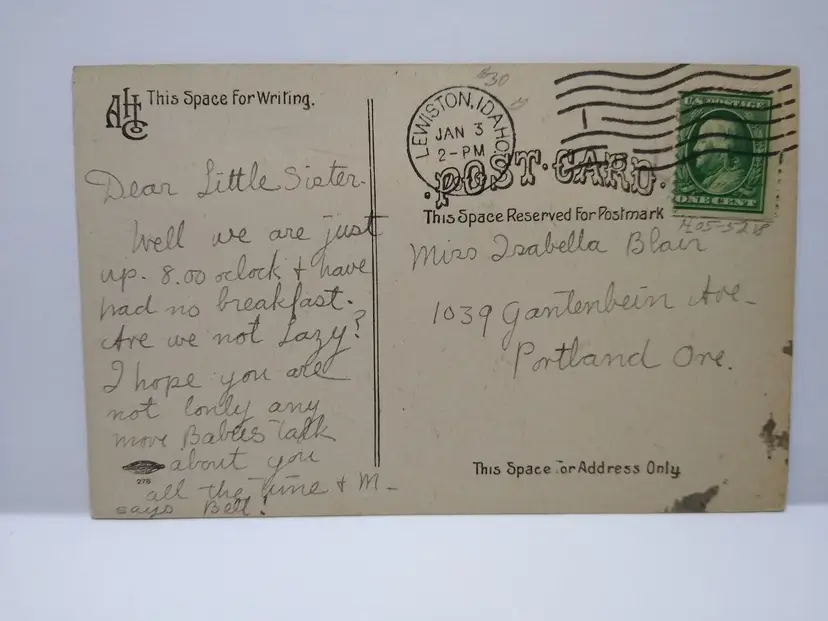 AHC Co
This Space For Writing.
Dear Little Sister-
Well we are just
up. 8.00 oclock & have
had no breakfast.
Are we not Lazy?
I hope you are
not lonly any
more Babies talk
about you
all the time & M-
says Bell!
276
$30
LEWISTON, IDAHO
JAN 3
2-PM
U.S. POSTAGE
ONE CENT
POST CARD.
This Space Reserved For Postmark
H05-5218
Miss Isabella Blair
1039 Gantenbein Ave-
Portland Ore.
This Space For Address Only